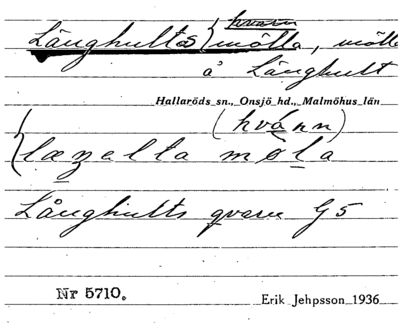 hvarn
Långhults mölla, mölla
å Långhult
Hallaröds sn., Onsjö hd., Malmöhus län
(hvánn)
læŋalta möla
Långhults qvarn G5
Nr 5710.
Erik Jehpsson 1936